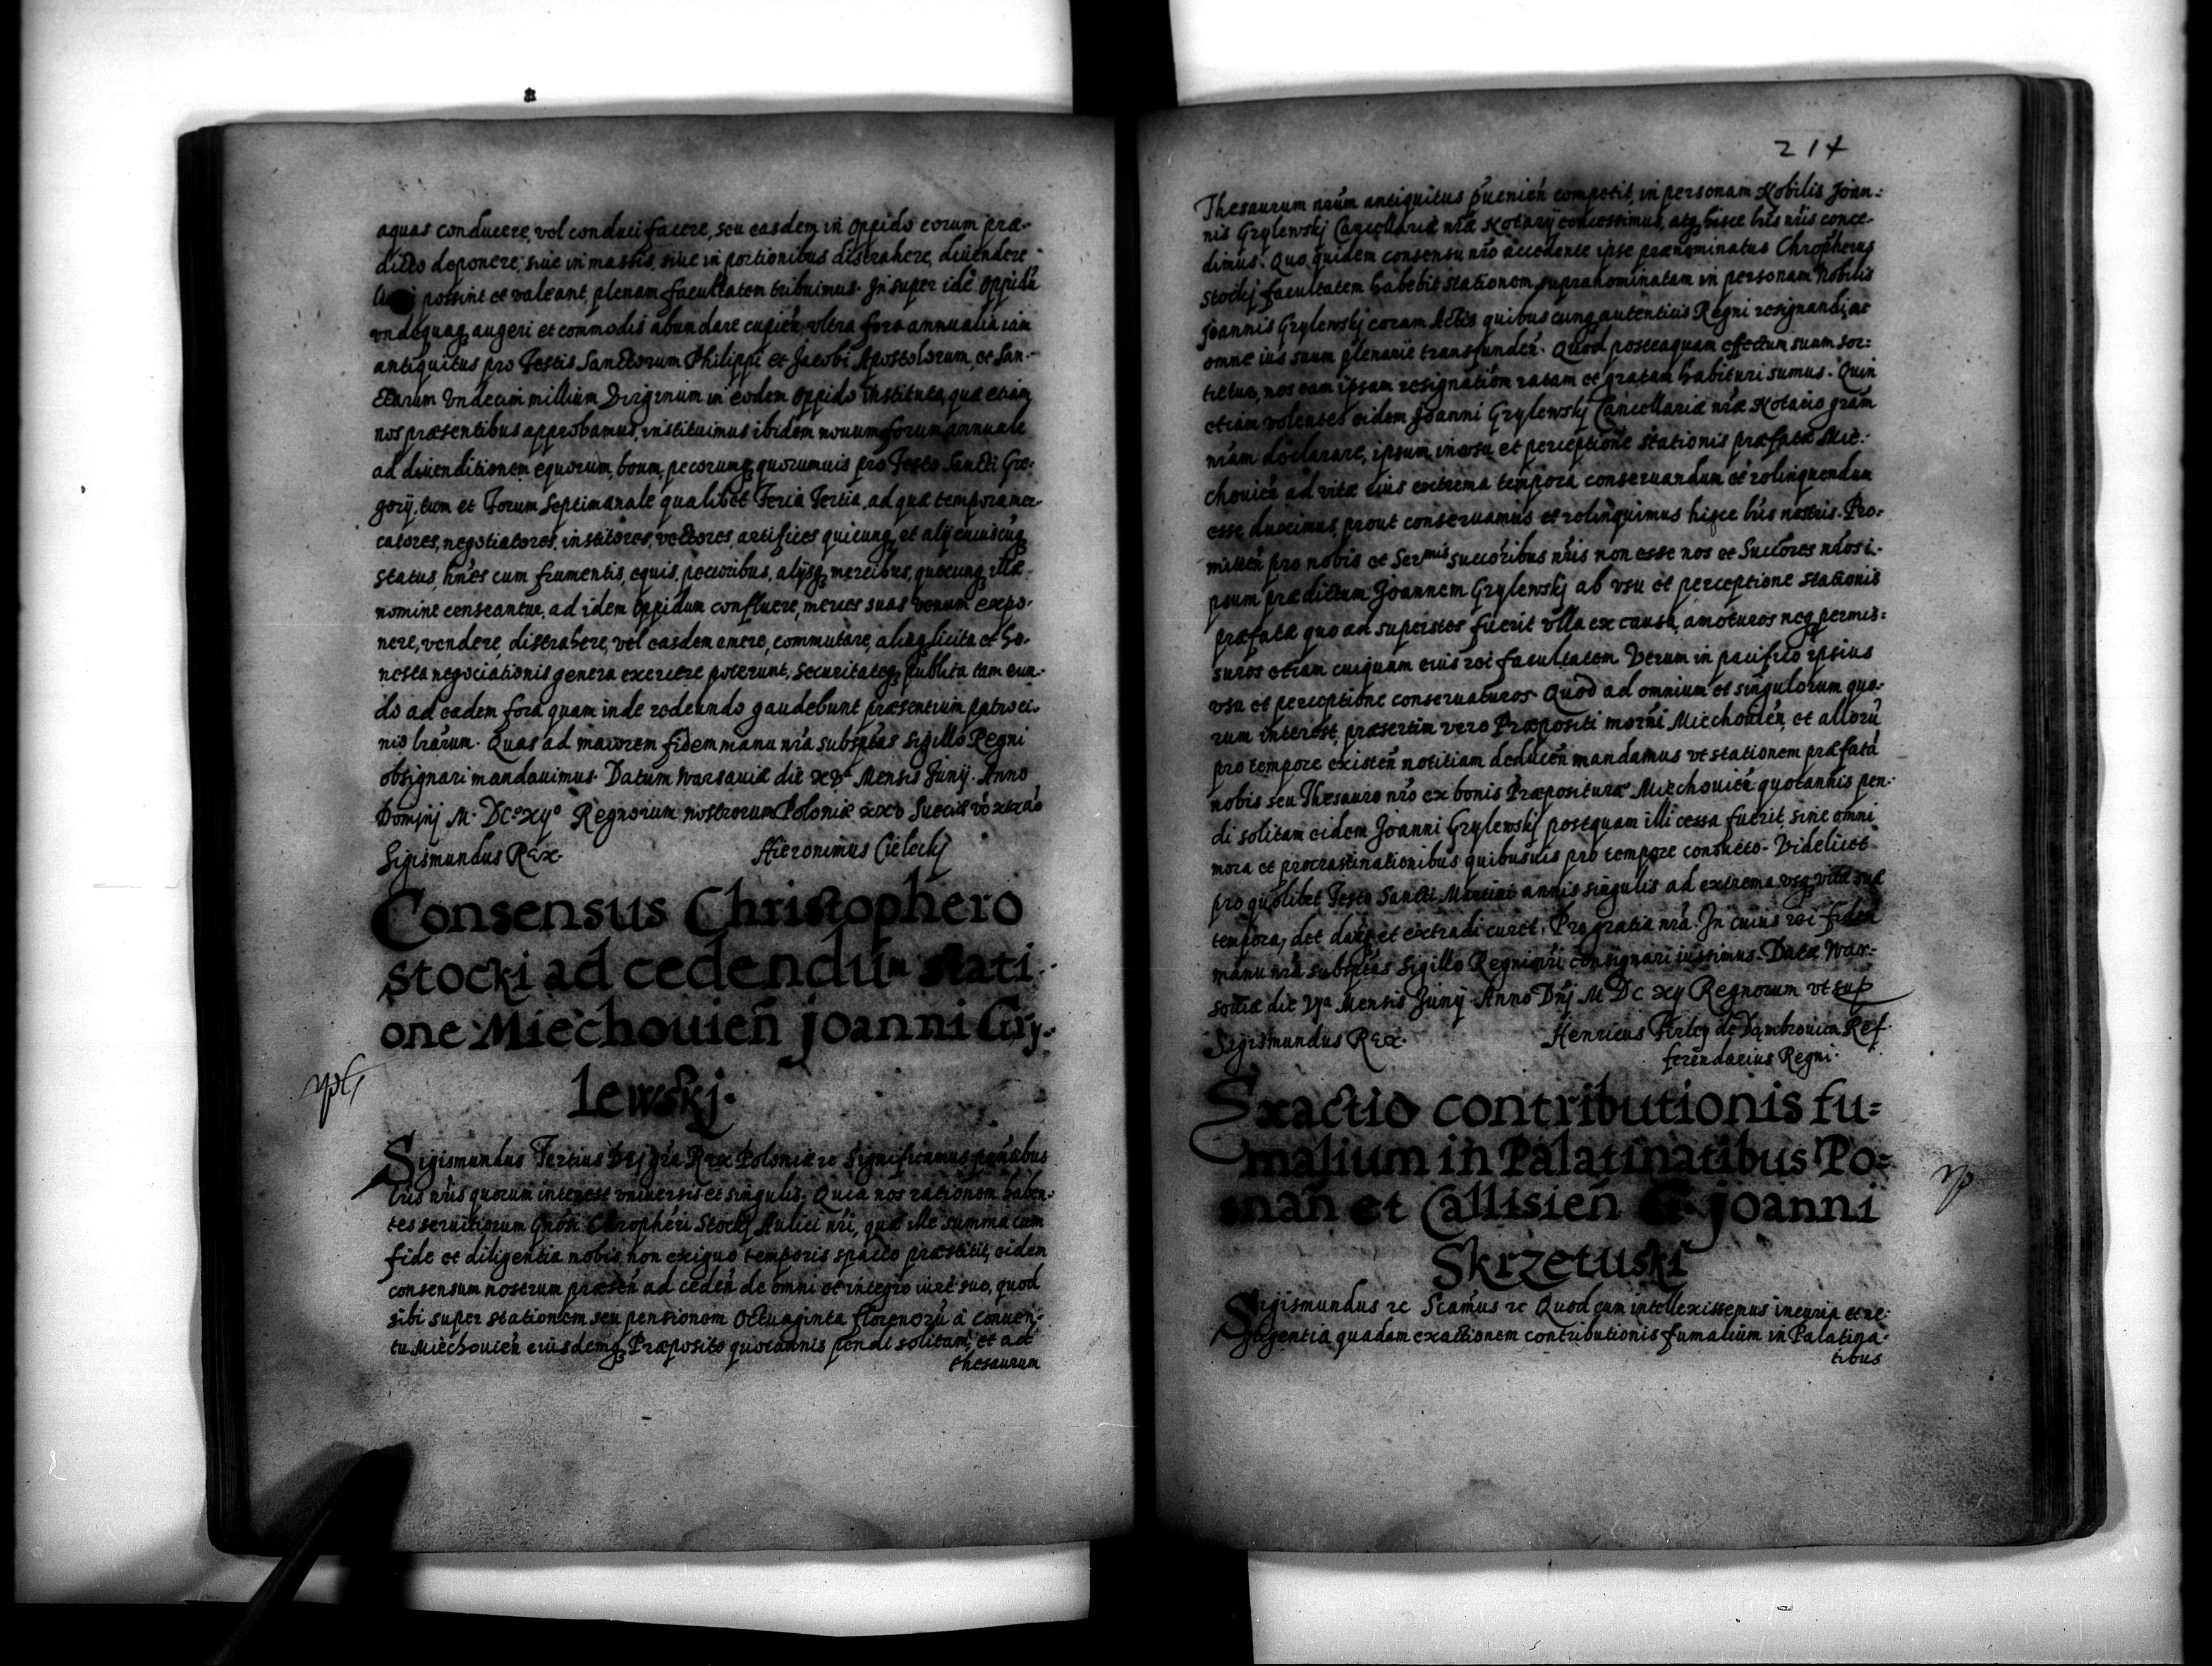 aquas conducere, vel conduci facere, seu easdem in oppido eorum præ-
dicto deponere, siue in massis, siue in portionibus distrahere, diuendere
possint et valeant, plenam facultatem tribuimus. Insuper idē oppidū
vndequaq augeri et commodis abundare cupień, vltra fora annualia iam
antiquitus pro Festis Sanctorum Philippi et Jacobi Apostolorum, et San-
ctarum Vndecim millium Virginum in eodem oppido instituta, quæ etiam
nos præsentibus approbamus, instituimus ibidem nouum forum annuale
ad diuenditionem equorum, boum, pecorumq quorumuis pro Festo Sancti Gre-
gorij, tum et Forum Septimanale qualibet Feria Tertia, ad quæ tempora mer-
catores, negotiatores, institores, vectores, artifices quicunq et alij cuiuscūq
status hoīes cum frumentis, equis, pecoribus, alijsq mercibus, quocunq illæ
nomine censeantur, ad idem oppidum confluere, merces suas venum expo-
nere, vendere, distrahere, vel easdem emere, commutare, aliaq licita et ho-
nesta negociationis genera exercere poterunt, securitateq publica tam eun-
do ad eadem fora quam inde redeundo gaudebunt præsentium patroci-
nio lrārum. Quas ad maiorem fidem manu nrā subscptas Sigillo Regni
obsignari mandauimus. Datum Warsauiæ die xvª Mensis Junij. Anno
Dominj M. DCº xvº Regnorum nostrorum Poloniæ xxv Sueciæ vo xxii áo
Sigismundus Rex.
Hieronimus Cielecky
Consensus Christophero
Stocki ad cedendum stati-
one Miechouień Joanni Gry-
lewskj.
Sigismundus Tertius Dej grā Rex Poloniæ rc Significamus pñtibus
lris nris quorum interest vniuersis et singulis. Quia nos rationem haben-
tes seruitiorum Gnosi Chropheri Stocky Aulici nri, quæ ille summa cum
fide et diligentia nobis non exiguo temporis spatio præstitit, eidem
consensum nostrum præseń ad cedeń de omni et integro iure suo, quod
sibi super stationem seu pensionem octuaginta florenorū à conuen-
tu Miechouień eiusdemq Præposito quotannis pendi solitam, et ad
thesaurum
214
Thesaurum nrūm antiquitus puenień competit, in personam Nobilis Joan-
nis Grylewskj Cancellariæ nræ Notarij concessimus, atq hisce lris nris conce-
dimus. Quo quidem consensu nro accedente ipse prænominatus Chropherus
Stockj facultatem habebit stationem supranominatam in personam Nobilis
Joannis Grylewskj coram Actis quibuscunq autenticis Regni resignandi, ac
omne ius suum plenarie transfundeń. Quod posteaquam effectum suum sor-
tietur, nos eam ipsam resignatiōn ratam et gratam habituri sumus. Quin
etiam volentes eidem Joanni Grylewskj Cancellariæ nræ Notario grām
nrām declarare, ipsum in vsu et perceptione stationis præfatæ Mie-
chouień ad vitæ eius extrema tempora conseruandum et relinquendum
esse duximus, prout conseruamus et relinquimus hisce lris nostris. Pro-
mitteń pro nobis et Sermis Succoribus nris non esse nos et Succores nros i-
psum prædictum Joannem Grylewskj ab vsu et perceptione stationis
præfatæ quo ad superstes fuerit vlla ex causa, amoturos neq permis-
suros etiam cuiquam eius rei facultatem. Verum in pacifico ipsius
vsu et perceptione conseruaturos. Quod ad omnium et singulorum quo-
rum interest, præsertim vero Præpositi mōrni Miechouień, et aliorū
pro tempore existeń notitiam deducēn mandamus vt stationem præfatā
nobis seu Thesauro nro ex bonis Præpositura Miechouień quotannis pen-
di solitam eidem Joanni Grylewskj postquam illi cessa fuerit, sine omni
mora et procrastinationibus quibusuis pro tempore consueto. Videlicet
pro quolibet Festo Sancti Martini annis singulis ad extrema vsq vitæ suæ
tempora, det dariq et extradi curet, Pro gratia nrā. In cuius rei fidem
manu nrā subscptas Sigillo Regni nri consignari iussimus. Datæ War-
souiæ die Vjª Mensis Junij. Anno Dnj M DC xv Regnorum vt sup
Sigismundus Rex.
Henricus Firley de Dąmbrouica Ref-
ferendarius Regni.
Exactio contributionis fu-
malium in Palatinatibus Po-
snań et Callisień G. Joanni
Skrzetuski
Sigismundus rc Scamūs rc Quod cum intellexissemus incuria et ne-
gligentia quadam exactionem contributionis fumalium in Palatina-
tibus